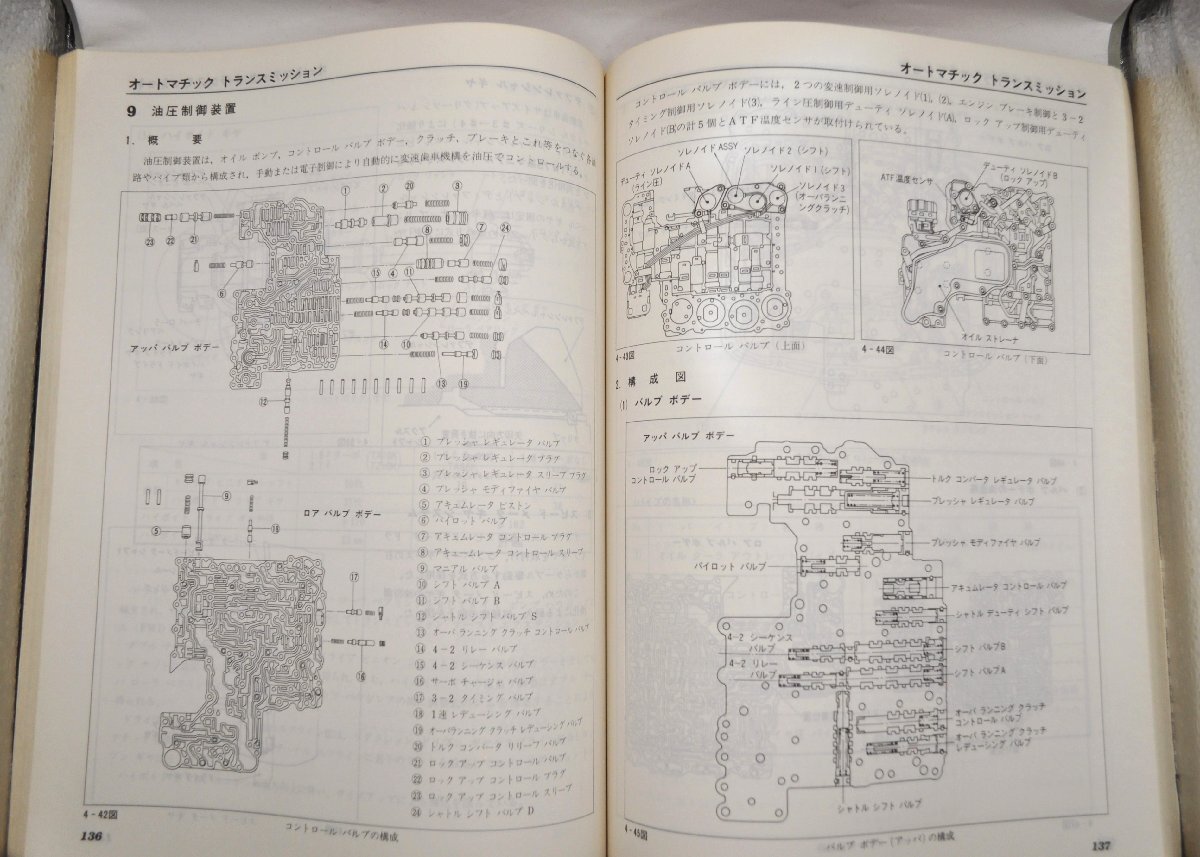 オートマチック トランスミッション
9 油圧制御装置
1. 概 要
油圧制御装置は、オイル ポンプ、コントロール バルブ ボデー、クラッチ、ブレーキとこれ等をつなぐ各油
路やパイプ類から構成され、手動または電子制御により自動的に変速歯車機構を油圧でコントロールする。
アッパ バルブ ボデー
ロア バルブ ボデー
① プレッシャ レギュレータ バルブ
② プレッシャ レギュレータ プラグ
③ プレッシャ レギュレータ スリーブ プラグ
④ プレッシャ モディファイヤ バルブ
⑤ アキュムレータ ピストン
⑥ パイロット バルブ
⑦ アキュムレータ コントロール プラグ
⑧ アキュームレータ コントロール スリーブ
⑨ マニアル バルブ
⑩ シフト バルブ A
⑪ シフト バルブ B
⑫ シャトル シフト バルブ S
⑬ オーバ ランニング クラッチ コントロール バルブ
⑭ 4-2 リレー バルブ
⑮ 4-2 シーケンス バルブ
⑯ サーボ チャージャ バルブ
⑰ 3-2 タイミング バルブ
⑱ 1速 レデューシング バルブ
⑲ オーバランニング クラッチ レデューシング バルブ
⑳ トルク コンバータ リリーフ バルブ
㉑ ロック アップ コントロール バルブ
㉒ ロック アップ コントロール プラグ
㉓ ロック アップ コントロール スリーブ
㉔ シャトル シフト バルブ D
4-42図
コントロール バルブの構成
136
オートマチック トランスミッション
コントロール バルブ ボデーには、2つの変速制御用ソレノイド(1)、(2)、エンジン ブレーキ制御と3-2
タイミング制御用ソレノイド(3)、ライン圧制御用デューティ ソレノイド(A)、ロック アップ制御用デューティ
ソレノイド(B)の計5個とATF温度センサが取付けられている。
ソレノイドASSY
ソレノイド2(シフト)
デューティ ソレノイドA
(ライン圧)
ソレノイド1(シフト)
ソレノイド3
(オーバランニ
ングクラッチ)
4-43図
コントロール バルブ(上面)
デューティ ソレノイドB
(ロック アップ)
ATF温度センサ
オイル ストレーナ
4-44図
コントロール バルブ(下面)
2. 構 成 図
(1) バルブ ボデー
アッパ バルブ ボデー
ロック アップ
コントロール バルブ
トルク コンバータ レギュレータ バルブ
プレッシャ レギュレータ バルブ
プレッシャ モディファイヤ バルブ
パイロット バルブ
アキュムレータ コントロール バルブ
シャトル デューティ シフト バルブ
4-2 シーケンス
バルブ
シフト バルブB
4-2 リレー
バルブ
シフト バルブA
オーバ ランニング クラッチ
コントロール バルブ
オーバ ランニング クラッチ
レデューシング バルブ
シャトル シフト バルブ
4-45図
バルブ ボデー(アッパ)の構成
137